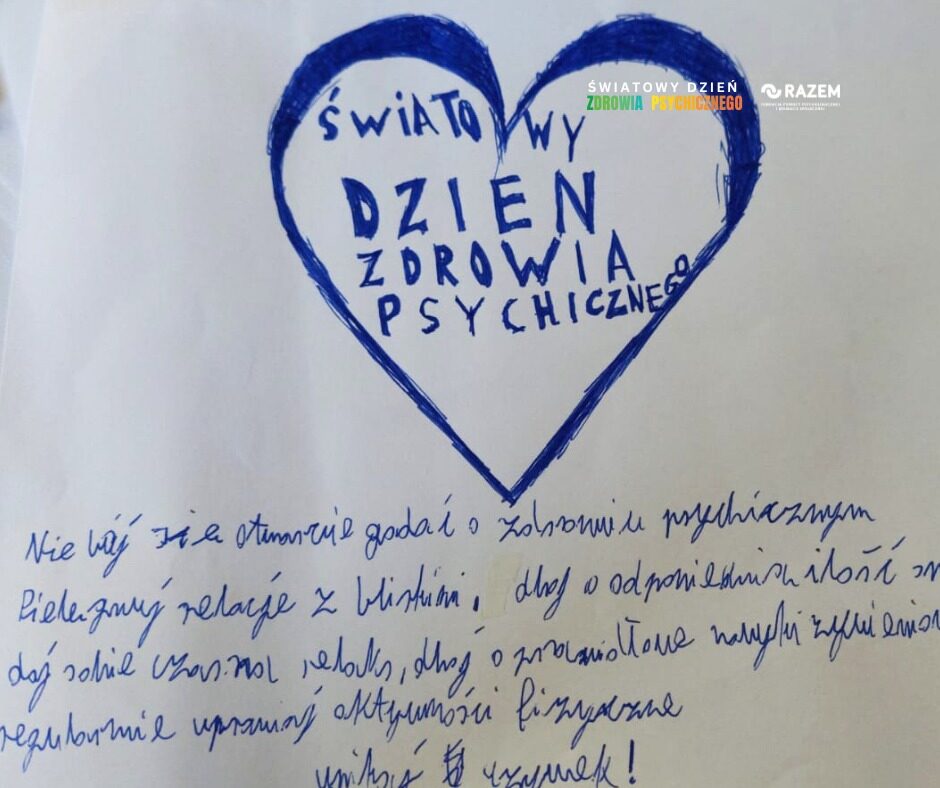 ŚWIATOWY DZIEŃ
ZDROWIA PSYCHICZNEGO
RAZEM
FUNDACJA POMOCY PSYCHOLOGICZNEJ
I EDUKACJI SPOŁECZNEJ
ŚWIATOWY
DZIEN
ZDROWIA
PSYCHICZNEGO
Nie bój się otwarcie gadać o zdrowiu psychicznym
Pielęgnuj relacje z bliskimi, dbaj o odpowiednią ilość
daj sobie czas na relaks, dbaj o prawidłowe nawyki
regularnie uprawiaj aktywności fizyczne
!